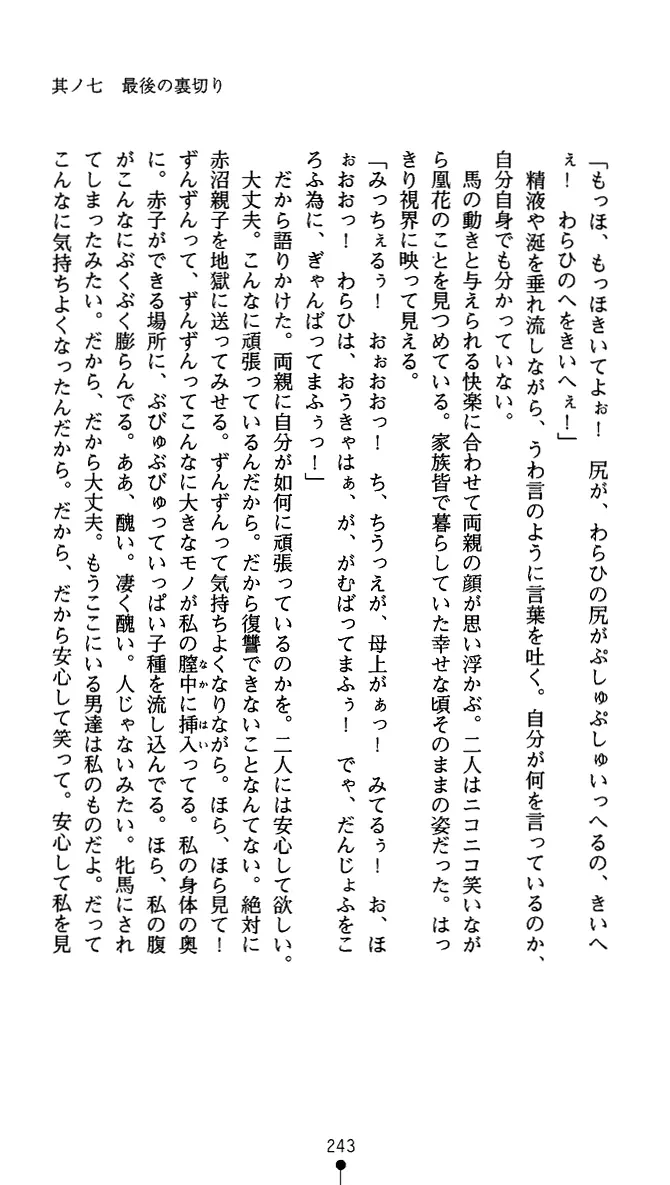 其ノ七　最後の裏切り
「もっほ、もっほきいてよぉ！　尻が、わらひの尻がぷしゅぷしゅいっへるの、きいへ
ぇ！　わらひのへをきいへぇ！」
　精液や涎を垂れ流しながら、うわ言のように言葉を吐く。自分が何を言っているのか、
自分自身でも分かっていない。
　馬の動きと与えられる快楽に合わせて両親の顔が思い浮かぶ。二人はニコニコ笑いなが
ら凰花のことを見つめている。家族皆で暮らしていた幸せな頃そのままの姿だった。はっ
きり視界に映って見える。
「みっちぇるぅ！　おぉおおっ！　ち、ちうっえが、母上がぁっ！　みてるぅ！　お、ほ
ぉおおっ！　わらひは、おうきゃはぁ、が、がむばってまふぅ！　でゃ、だんじょふをこ
ろふ為に、ぎゃんばってまふぅっ！」
　だから語りかけた。両親に自分が如何に頑張っているのかを。二人には安心して欲しい。
　大丈夫。こんなに頑張っているんだから。だから復讐できないことなんてない。絶対に
赤沼親子を地獄に送ってみせる。ずんずんって気持ちよくなりながら。ほら、ほら見て！
ずんずんって、ずんずんってこんなに大きなモノが私の膣中に挿入ってる。私の身体の奥
に。赤子ができる場所に、ぶびゅぶびゅっていっぱい子種を流し込んでる。ほら、私の腹
がこんなにぶくぶく膨らんでる。ああ、醜い。凄く醜い。人じゃないみたい。牝馬にされ
てしまったみたい。だから、だから大丈夫。もうここにいる男達は私のものだよ。だって
こんなに気持ちよくなったんだから。だから、だから安心して笑って。安心して私を見
243